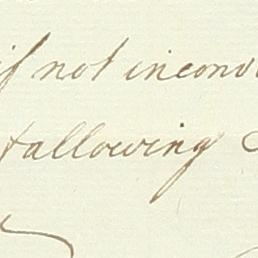 if not inconv
tallowing